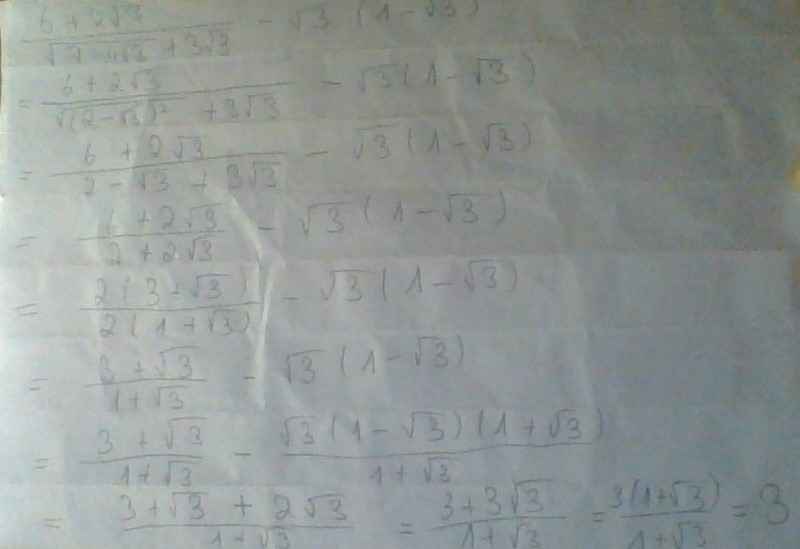 (6+2√3)/(√(7-4√3)+3√3) - √3(1-√3)
= (6+2√3)/(√((2-√3)²)+3√3) - √3(1-√3)
= (6+2√3)/(2-√3+3√3) - √3(1-√3)
= (6+2√3)/(2+2√3) - √3(1-√3)
= (2(3+√3))/(2(1+√3)) - √3(1-√3)
= (3+√3)/(1+√3) - √3(1-√3)
= (3+√3)/(1+√3) - (√3(1-√3)(1+√3))/(1+√3)
= (3+√3+2√3)/(1+√3) = (3+3√3)/(1+√3) = (3(1+√3))/(1+√3) = 3